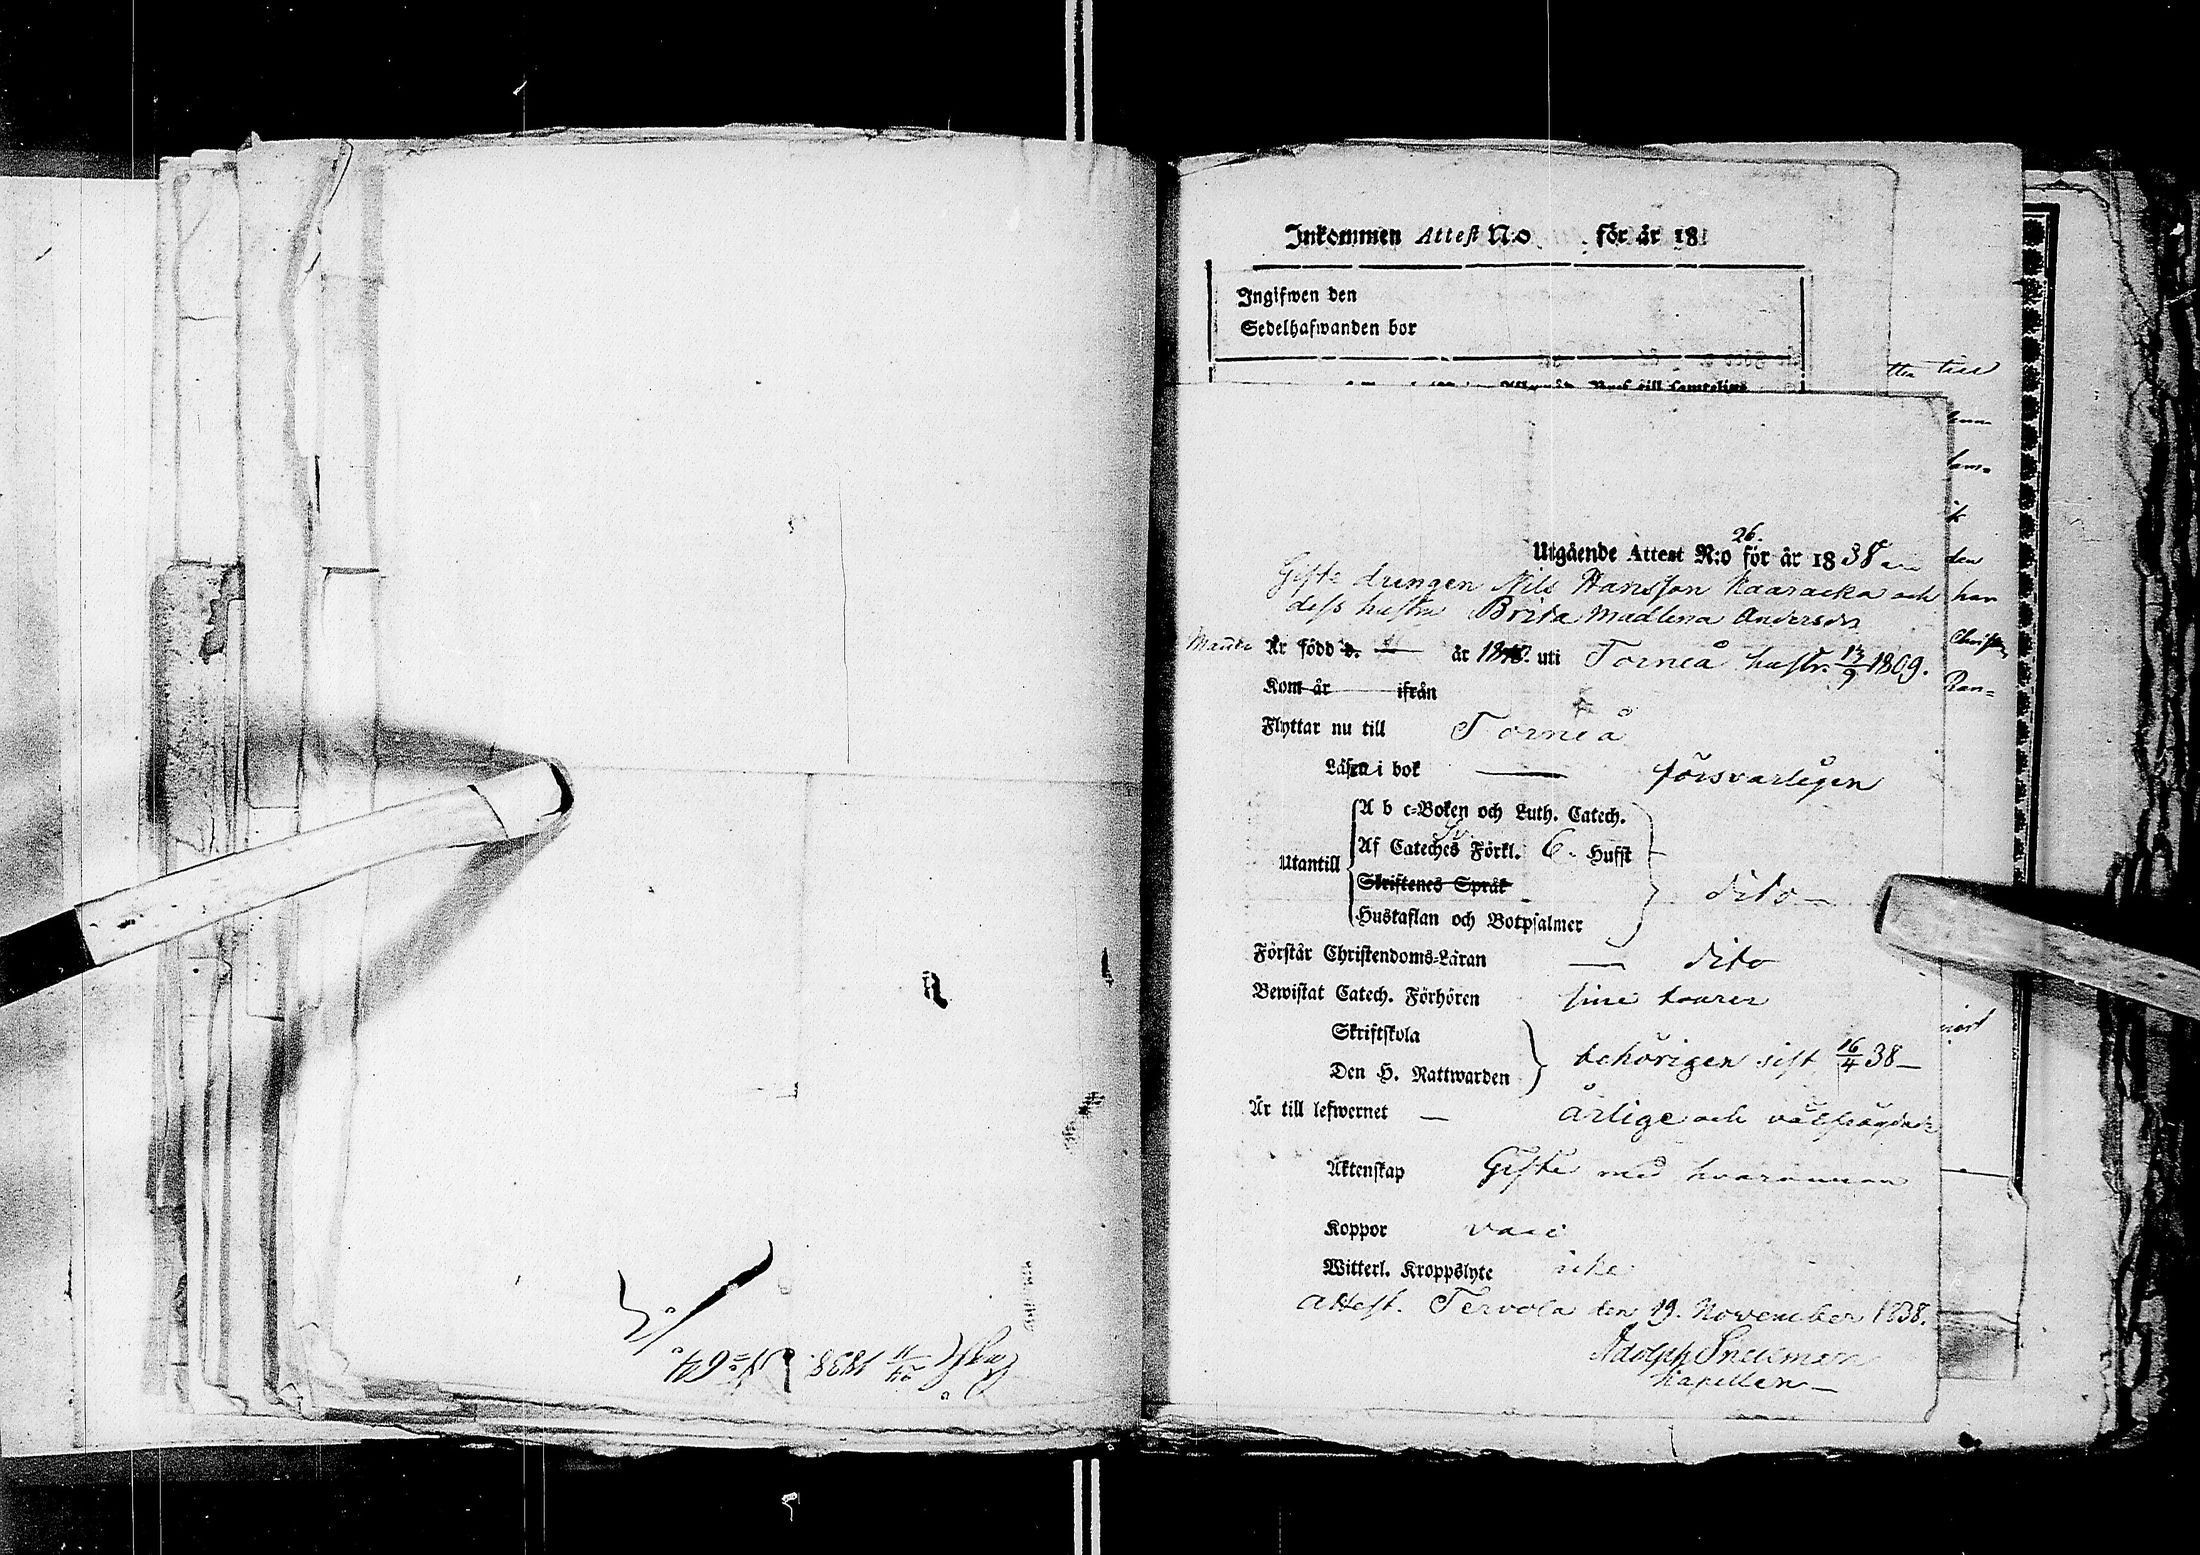 Inkommen Attest N:o för år 181
Ingifwen den
Sedelhafwanden bor
Utgående Attest N:o 26. för år 1838
Gifte drengen Nils Hansson Kaaracka och
dess hustru Brita Madlena Andersdr
Mannen Är född d. år 18 uti Torneå hustr. 13/9 1809.
Kom år ifrån
Flyttar nu till Torneå
Läsa i bok — försvarligen
Utantill
A b c-Boken och Luth. Catech.
Af Cateches Sv. Förkl. 6. Hufst
Skriftenes Språk
Hustaflan och Botpsalmer
dito
Förstår Christendoms-Läran — dito
Bewistat Catech. Förhören sine tourer
Skriftskola
Den H. Nattwarden
behörigen sist 16/4 38 —
Är till lefwernet — ärlige och välfrägdade
Äktenskap Gifte med hvarannan
Koppor
Witterl. Kroppslyte icke
Attest. Tervola den 19. November 1838.
Adolph Snellman
Kapellan —
tten till
den
han
Ran=
Ingift 24/11 1838. No 64